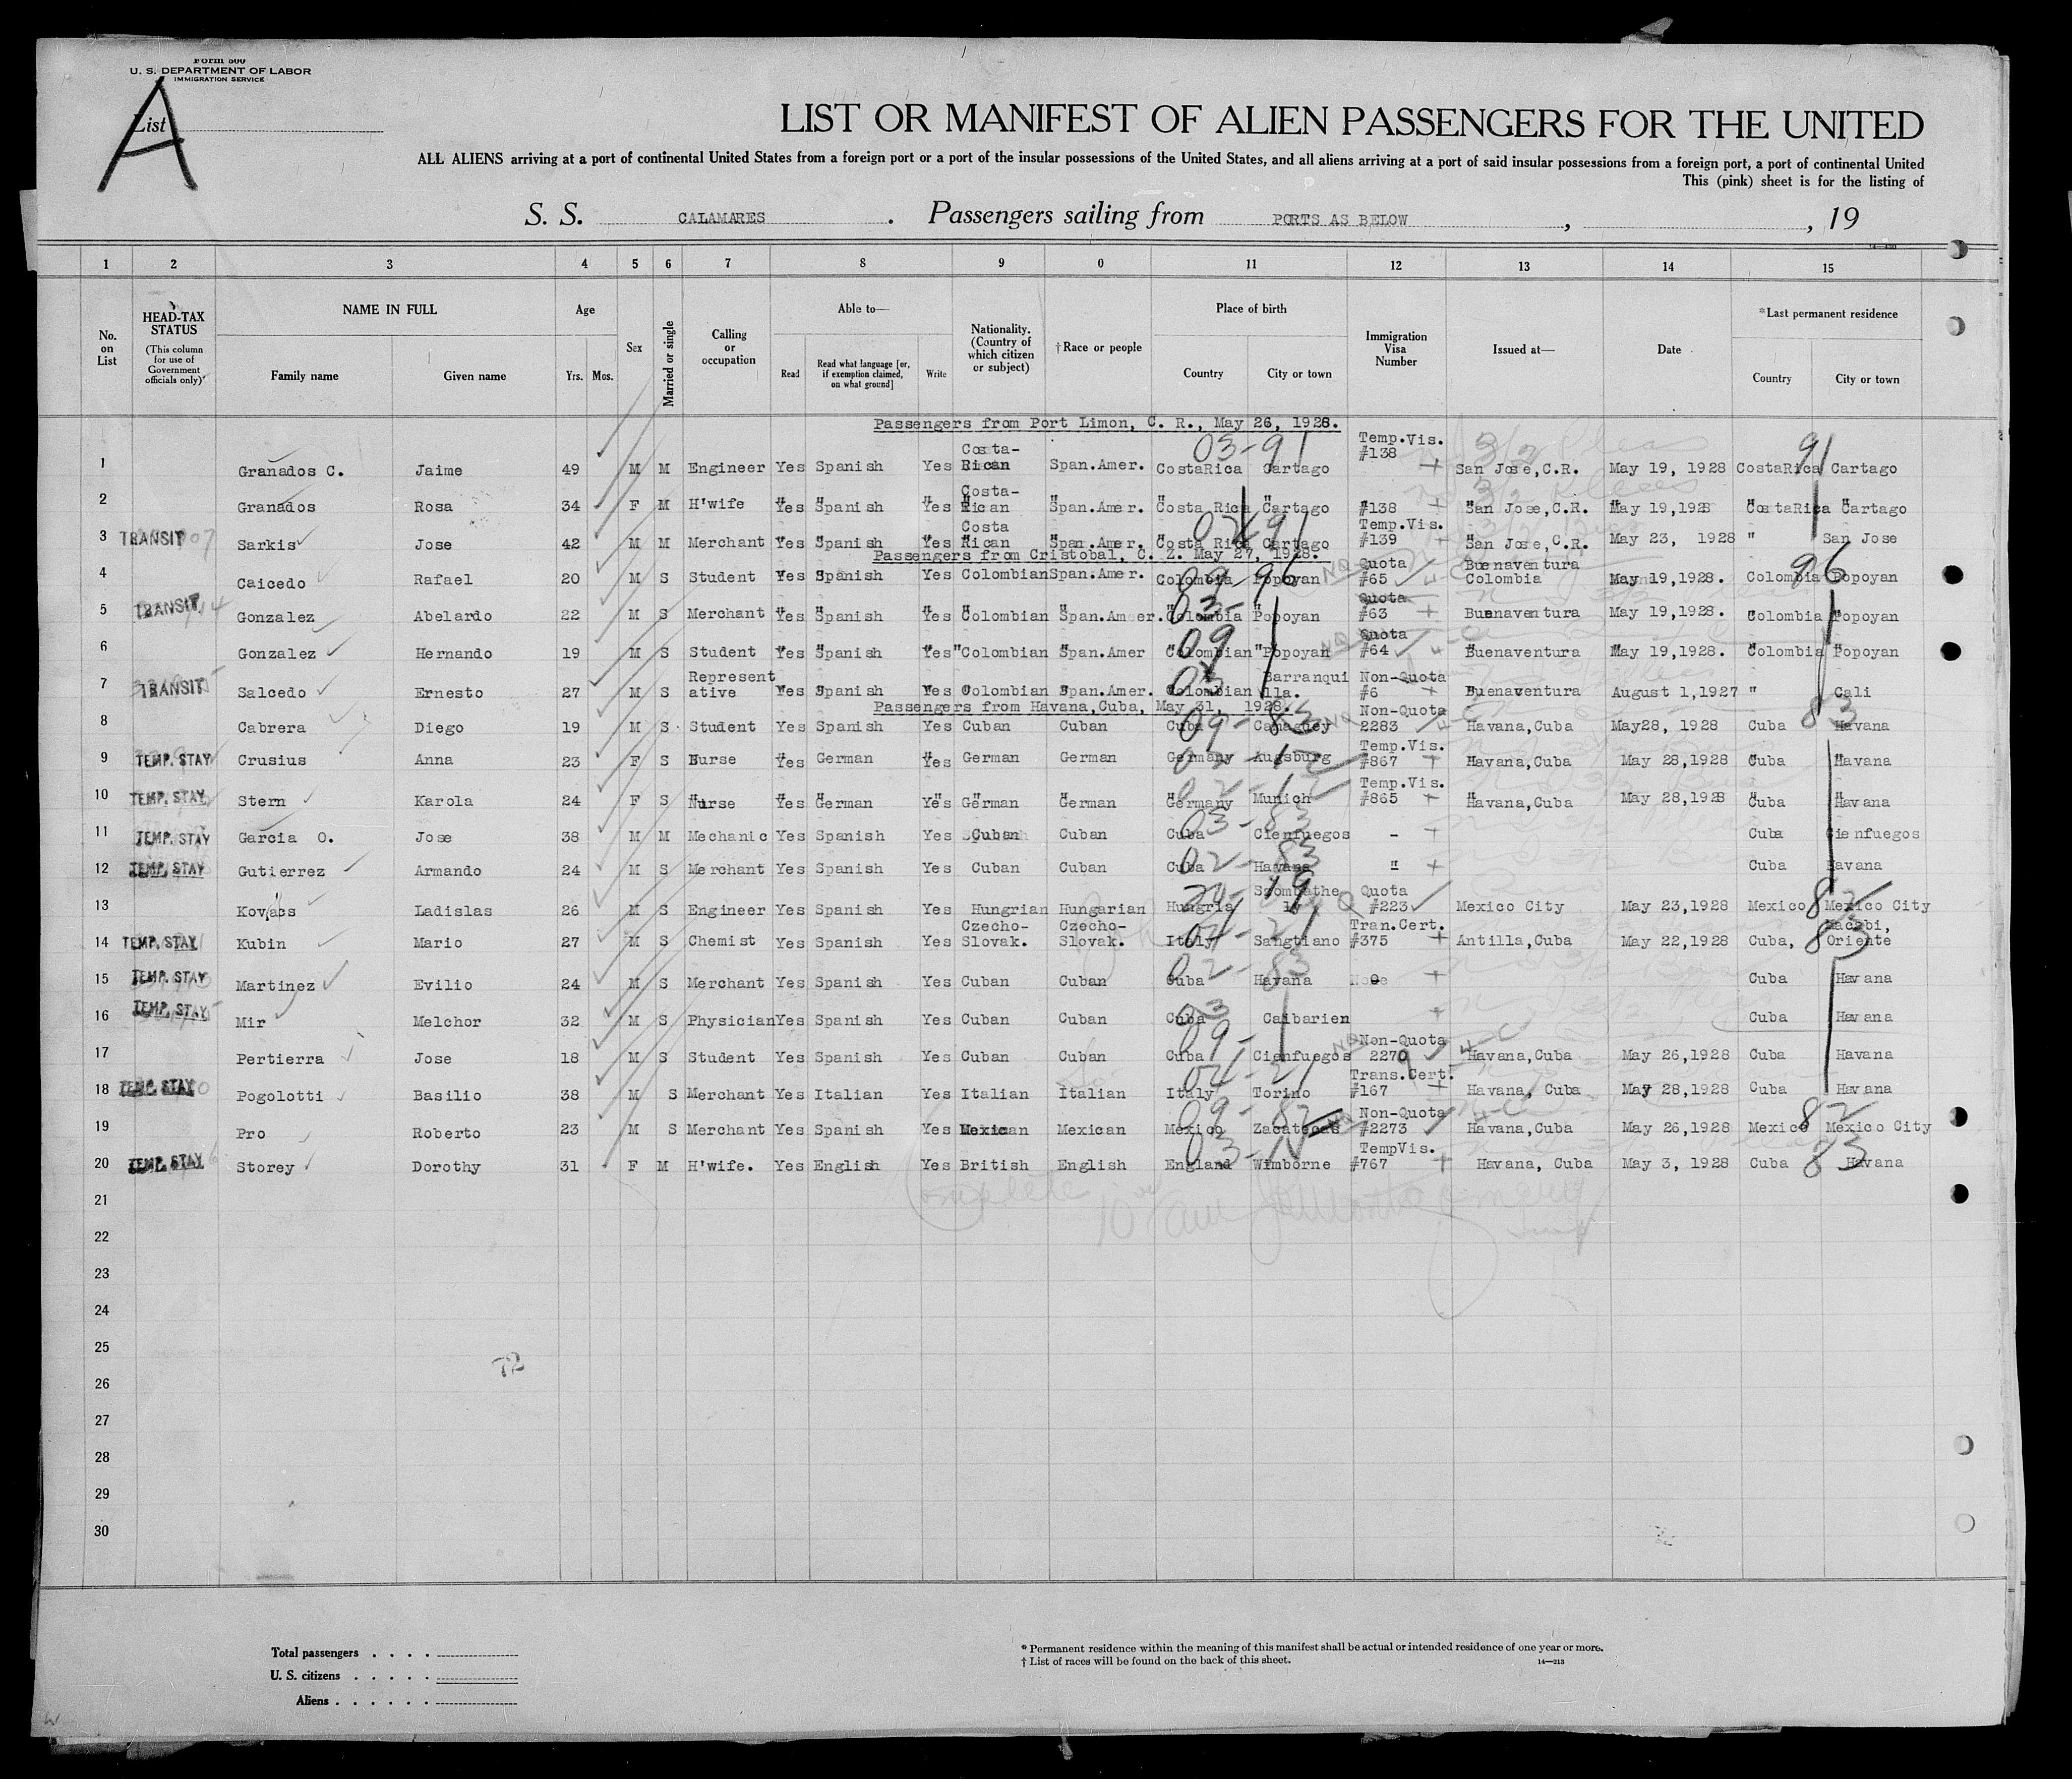 Form 500
U. S. DEPARTMENT OF LABOR
IMMIGRATION SERVICE
A
List
LIST OR MANIFEST OF ALIEN PASSENGERS FOR THE UNITED
ALL ALIENS arriving at a port of continental United States from a foreign port or a port of the insular possessions of the United States, and all aliens arriving at a port of said insular possessions from a foreign port, a port of continental United
This (pink) sheet is for the listing of
S. S. CALAMARES. Passengers sailing from PORTS AS BELOW, , 19
1 2 3 4 5 6 7 8 9 0 11 12 13 14 15
No. on List
HEAD-TAX STATUS
(This column for use of Government officials only)
NAME IN FULL
Family name Given name
Age
Yrs. Mos.
Sex
Married or single
Calling or occupation
Able to—
Read Read what language [or, if exemption claimed, on what ground] Write
Nationality. (Country of which citizen or subject)
†Race or people
Place of birth
Country City or town
Immigration Visa Number
Issued at—
Date
*Last permanent residence
Country City or town
Passengers from Port Limon, C. R., May 26, 1928.
1 Granados C. Jaime 49 M M Engineer Yes Spanish Yes Costa-Rican Span.Amer. CostaRica Cartago Temp.Vis. #138 San Jose,C.R. May 19, 1928 CostaRica Cartago
2 Granados Rosa 34 F M H'wife Yes Spanish Yes Costa-Rican Span.Amer. Costa Rica Cartago #138 San Jose,C.R. May 19,1928 CostaRica Cartago
3 TRANSIT Sarkis Jose 42 M M Merchant Yes Spanish Yes Costa Rican Span.Amer. Costa Rica Cartago Temp.Vis. #139 San Jose,C.R. May 23, 1928 " San Jose
Passengers from Cristobal, C. Z. May 27, 1928.
4 Caicedo Rafael 20 M S Student Yes Spanish Yes Colombian Span.Amer. Colombia Popoyan Quota #65 Buenaventura Colombia May 19,1928. Colombia Popoyan
5 TRANSIT Gonzalez Abelardo 22 M S Merchant Yes Spanish Yes Colombian Span.Amer. Colombia Popoyan Quota #63 Buenaventura May 19,1928. Colombia Popoyan
6 Gonzalez Hernando 19 M S Student Yes Spanish Yes "Colombian Span.Amer Colombian "Popoyan Quota #64 Buenaventura May 19,1928. Colombia Popoyan
7 TRANSIT Salcedo Ernesto 27 M S Representative Yes Spanish Yes Colombian Span.Amer. Colombian Barranquilla. Non-Quota #6 Buenaventura August 1,1927 " Cali
Passengers from Havana,Cuba, May 31, 1928.
8 Cabrera Diego 19 M S Student Yes Spanish Yes Cuban Cuban Cuba Camaguey Non-Quota 2283 Havana,Cuba May28, 1928 Cuba Havana
9 TEMP. STAY Crusius Anna 23 F S Nurse Yes German Yes German German Germany Augsburg Temp.Vis. #867 Havana,Cuba May 28,1928 Cuba Havana
10 TEMP. STAY Stern Karola 24 F S Nurse Yes German Yes German German Germany Munich Temp.Vis. #865 Havana,Cuba May 28,1928 Cuba Havana
11 TEMP. STAY Garcia O. Jose 38 M M Mechanic Yes Spanish Yes Cuban Cuban Cuba Cienfuegos - Cuba Cienfuegos
12 TEMP. STAY Gutierrez Armando 24 M S Merchant Yes Spanish Yes Cuban Cuban Cuba Havana " Cuba Havana
13 Kovacs Ladislas 26 M S Engineer Yes Spanish Yes Hungrian Hungarian Hungria Szombathely Quota #223 Mexico City May 23,1928 Mexico Mexico City
14 TEMP. STAY Kubin Mario 27 M S Chemist Yes Spanish Yes Czecho-Slovak. Czecho-Slovak. Italy Sangtiano Tran.Cert. #375 Antilla,Cuba May 22,1928 Cuba, Macabi, Oriente
15 TEMP. STAY Martinez Evilio 24 M S Merchant Yes Spanish Yes Cuban Cuban Cuba Havana Cuba Havana
16 TEMP. STAY Mir Melchor 32 M S Physician Yes Spanish Yes Cuban Cuban Cuba Caibarien Cuba Havana
17 Pertierra Jose 18 M S Student Yes Spanish Yes Cuban Cuban Cuba Cienfuegos Non-Quota 2270 Havana,Cuba May 26,1928 Cuba Havana
18 TEMP. STAY Pogolotti Basilio 38 M S Merchant Yes Italian Yes Italian Italian Italy Torino Trans.Cert. #167 Havana, Cuba May 28,1928 Cuba Havana
19 Pro Roberto 23 M S Merchant Yes Spanish Yes Mexican Mexican Mexico Zacatecas Non-Quota #2273 Havana,Cuba May 26,1928 Mexico Mexico City
20 TEMP. STAY Storey Dorothy 31 F M H'wife. Yes English Yes British English England Wimborne TempVis. #767 Havana, Cuba May 3, 1928 Cuba Havana
21
22
23
24
25
26
27
28
29
30
Complete
72
Total passengers . . . .
U. S. citizens . . . . .
Aliens . . . . . .
* Permanent residence within the meaning of this manifest shall be actual or intended residence of one year or more.
† List of races will be found on the back of this sheet.
14—213